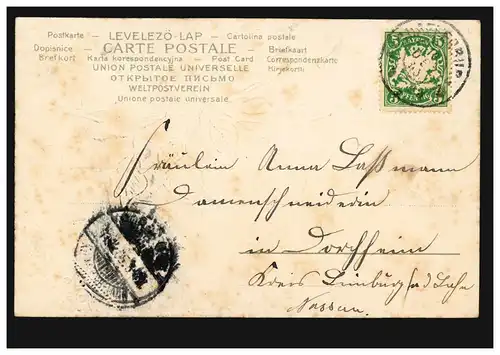 Postkarte - LEVELEZŐ-LAP - Cartolina postale
Dopisnice - CARTE POSTALE - Brefkaart
Brefkort - Karta korespondencyjna - Post Card - Correspondenzkarte
UNION POSTALE UNIVERSELLE - Kirjekortti
ОТКРЫТОЕ ПИСЬМО
WELTPOSTVEREIN
Unione postale universale.
5 5
Fräulein Anna Laßmann
Damenschneiderin
in Dorchheim
Kreis Limburg a/d Lahn
Nassau